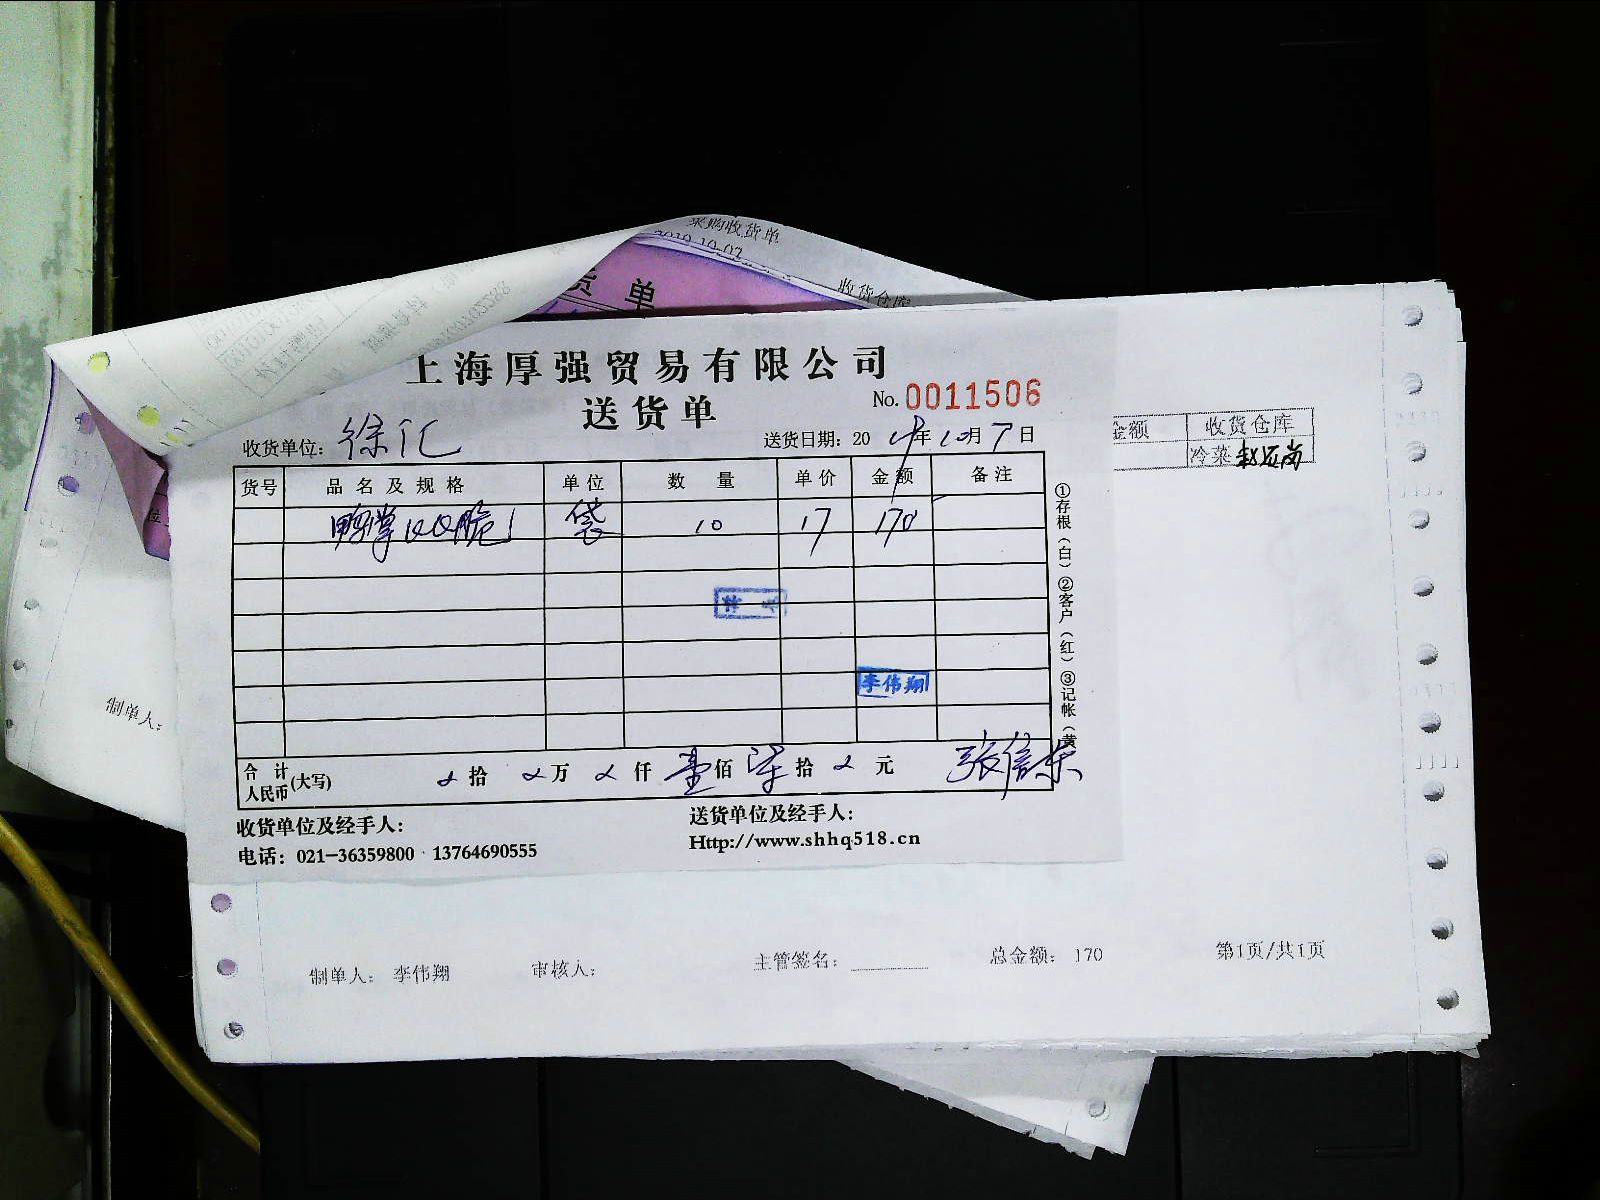 采购收货单
2019-10-07
收货仓库
货单
上海厚强贸易有限公司
送货单
No.0011506
收货单位：徐汇
送货日期：20 年10月7日
金额 收货仓库
冷菜
货号 品名及规格 单位 数量 单价 金额 备注
袋 10 17 170
李伟翔
①存根（白）②客户（红）③记帐（黄
合计人民币(大写) 拾 万 仟 壹佰 柒拾 元 张信东
收货单位及经手人： 送货单位及经手人：
电话：021-36359800 13764690555 Http://www.shhq518.cn
制单人：
制单人：李伟翔 审核人： 主管签名： 总金额：170 第1页/共1页